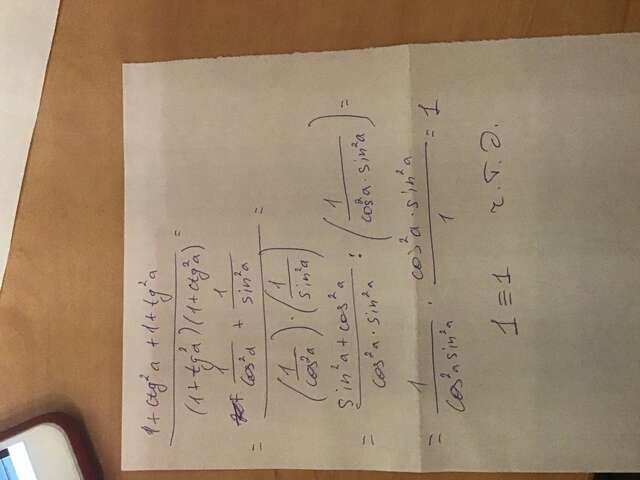 1+ctg²a +1+tg²a
(1+tg²a)(1+ctg²a) =
= 1/cos²a + 1/sin²a
(1/cos²a) · (1/sin²a) =
= sin²a + cos²a / cos²a · sin²a : (1 / cos²a · sin²a) =
= 1 / cos²a sin²a · cos²a · sin²a / 1 = 1
1 ≡ 1 ч.т.д.